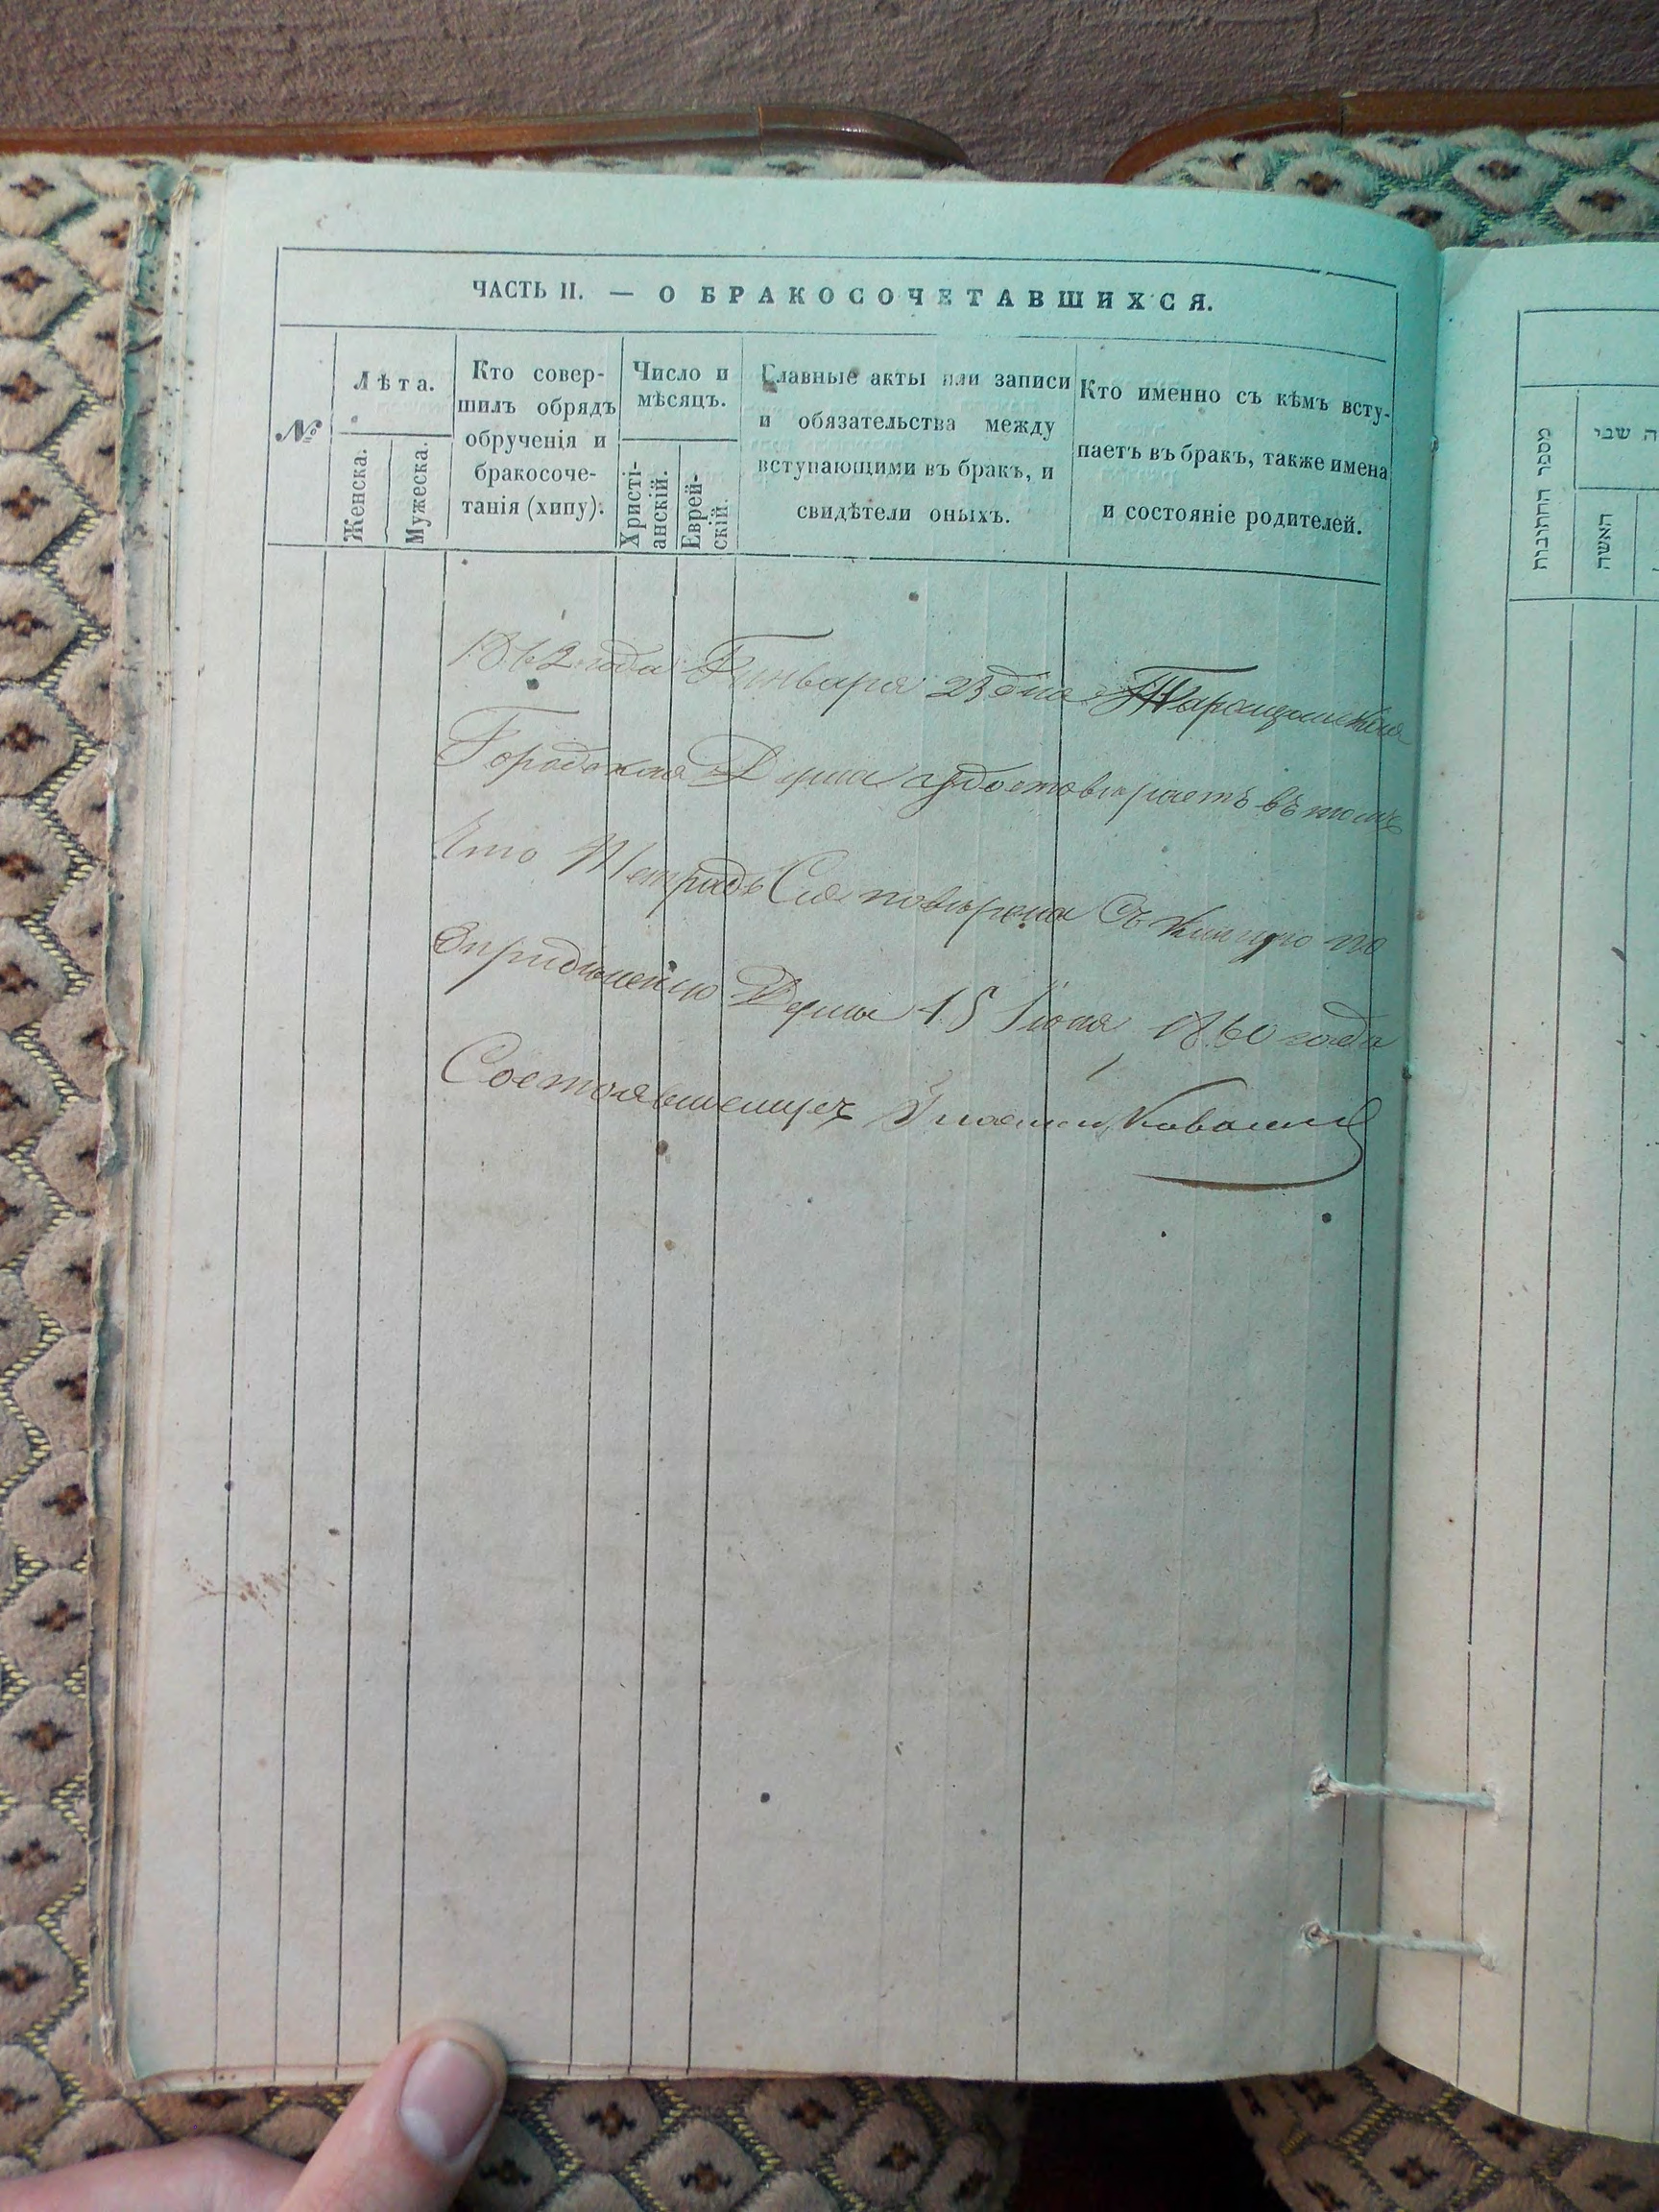 ЧАСТЬ II. — О БРАКОСОЧЕТАВШИХСЯ.
№
Лѣта.
Женска.
Мужеска.
Кто совер-
шилъ обрядъ
обрученія и
бракосоче-
танія (хипу).
Число и
мѣсяцъ.
Христі-
анскій.
Еврей-
скій.
Главные акты или записи
и обязательства между
вступающими въ бракъ, и
свидѣтели оныхъ.
Кто именно съ кѣмъ всту-
паетъ въ бракъ, также имена
и состояніе родителей.
1862 года Генваря 23 дня Таращанская
Городская Дума удостовѣраетъ въ томъ
Что Тетрадь Сія повѣрена Съ Книгую по
Опридѣленію Думы 15 Іюня 1860 года
Состоявшемуся Гласный
מספר החתונות
האשה
ה שבי